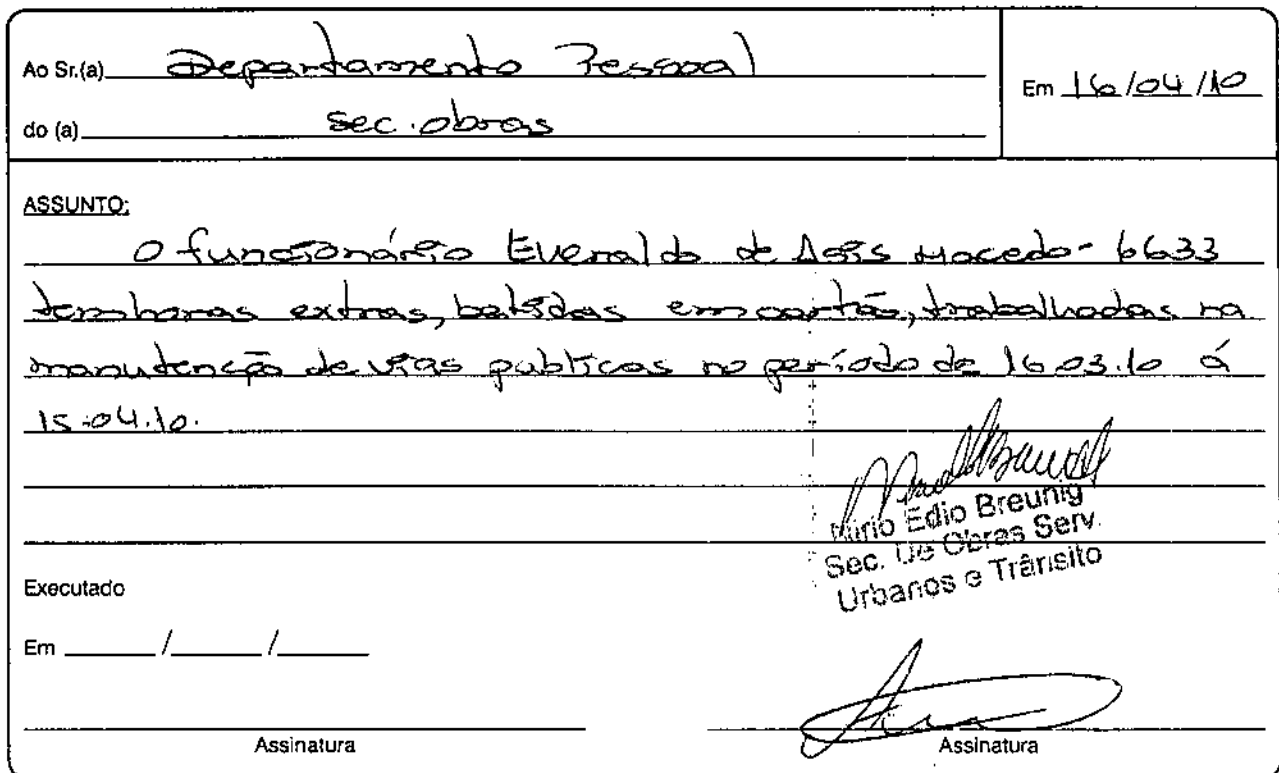 Ao Sr.(a) Departamento Pessoal
Em 16/04/10
do (a) Sec. obras
ASSUNTO:
O funcionário Everaldo de Assis Macedo - 6633
tem horas extras, batidas em cartão, trabalhadas na
manutenção de vias publicas no período de 16.03.10 á
15.04.10.
Edio Breunig
Sec. De Obras Serv.
Urbanos e Trânsito
Executado
Em ____/____/____
Assinatura
Assinatura